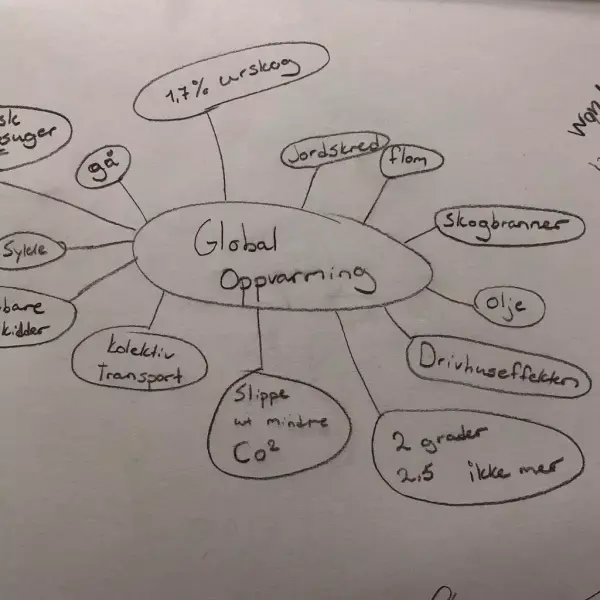 1,7% urskog
Jordskred
flom
suger
gå
Skogbranner
Global
Oppvarming
Sykle
olje
bare
kilder
Kolektiv
Transport
Drivhuseffekten
Slippe
ut mindre
Co²
2 grader
2,5 ikke mer